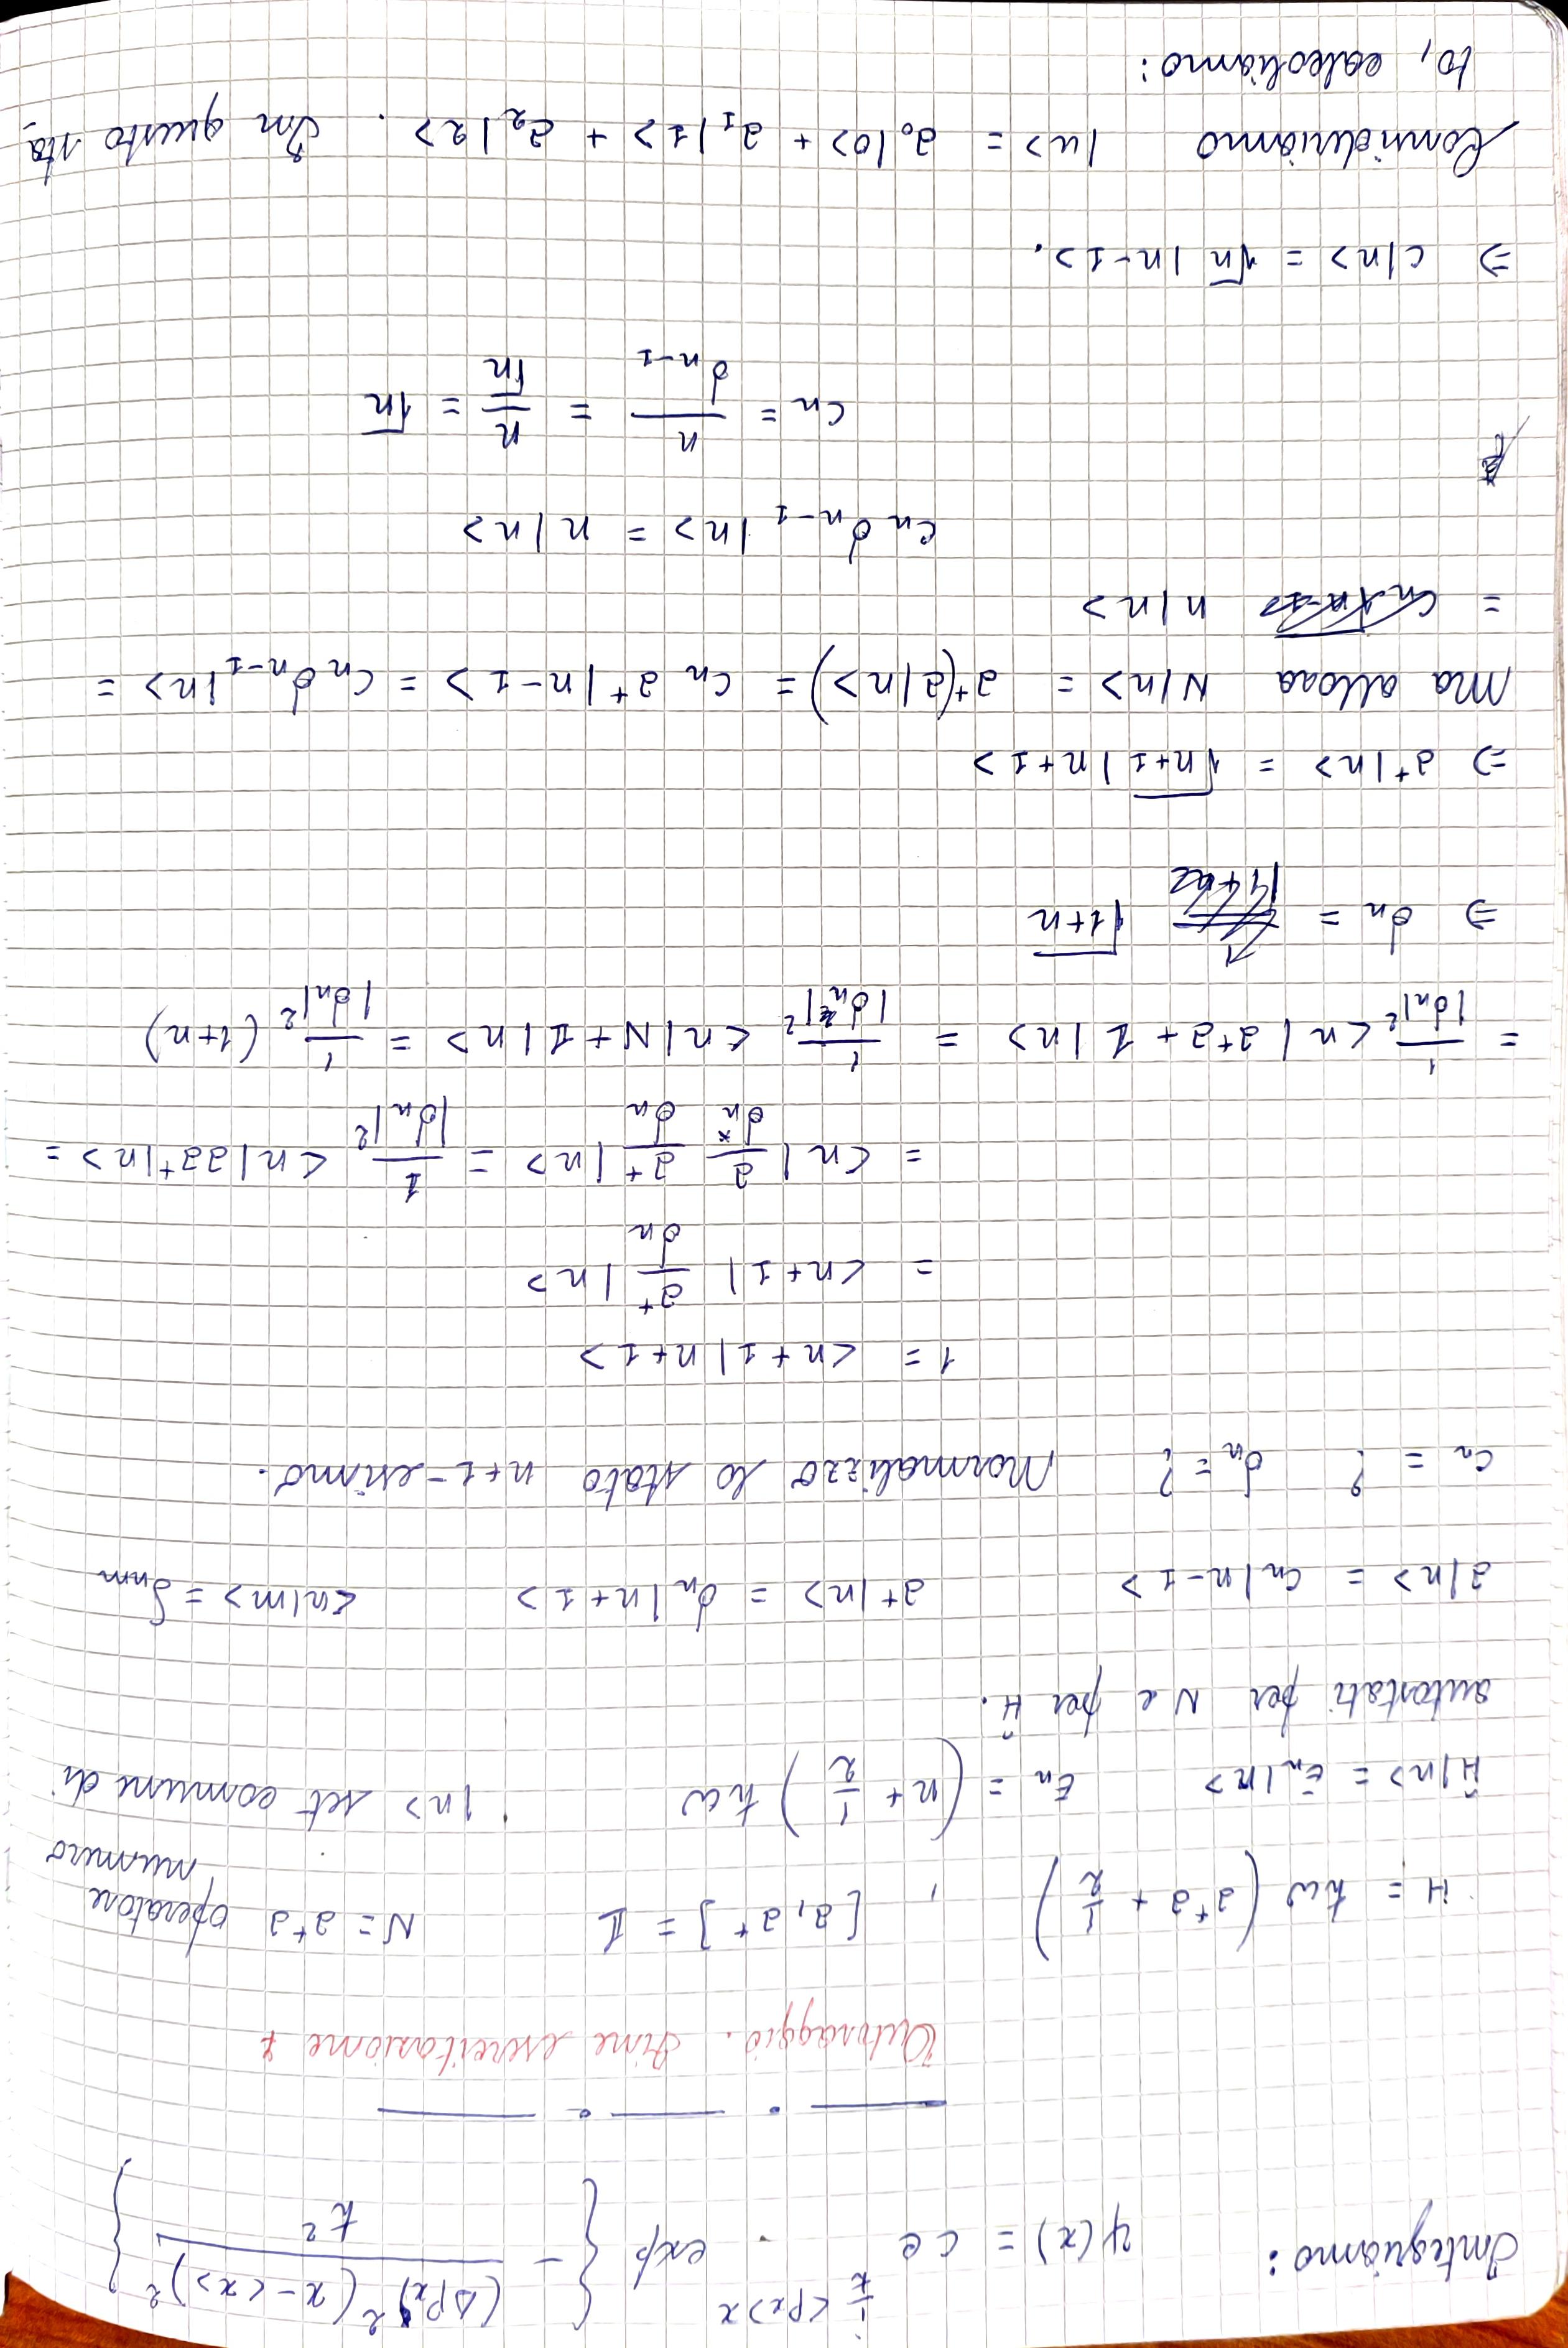 Integriamo: ψ(x) = c e^{i/ħ <p_x> x} · exp { - (Δp_x)² (x - <x>)² / ħ² }
Fine esercitazione
H = ħω (a⁺a + 1/2) , [a, a⁺] = 1 N = a⁺a operatore numero
Ĥ|n> = E_n|n> E_n = (n + 1/2) ħω ; |n> set comune di
autostati per N e per Ĥ.
a|n> = c_n|n-1> a⁺|n> = d_n|n+1> <n|m> = δ_nm
c_n = ? d_n = ? Normalizzo lo stato n+1-esimo.
1 = <n+1|n+1>
= <n+1| a⁺/d_n |n>
= <n| a/d_n* a⁺/d_n |n> = 1/|d_n|² <n|aa⁺|n> =
= 1/|d_n|² <n|a⁺a + 1|n> = 1/|d_n|² <n|N+1|n> = 1/|d_n|² (1+n)
⇒ d_n = √(1+n)
⇒ a⁺|n> = √(n+1) |n+1>
Ma allora N|n> = a⁺(a|n>) = c_n a⁺|n-1> = c_n d_{n-1} |n> =
= n|n>
c_n d_{n-1} |n> = n|n>
c_n = n/d_{n-1} = n/√n = √n
⇒ c|n> = √n |n-1>.
Consideriamo |u> = a₀|0> + a₁|1> + a₂|2> . In questo sta-
to, calcoliamo: